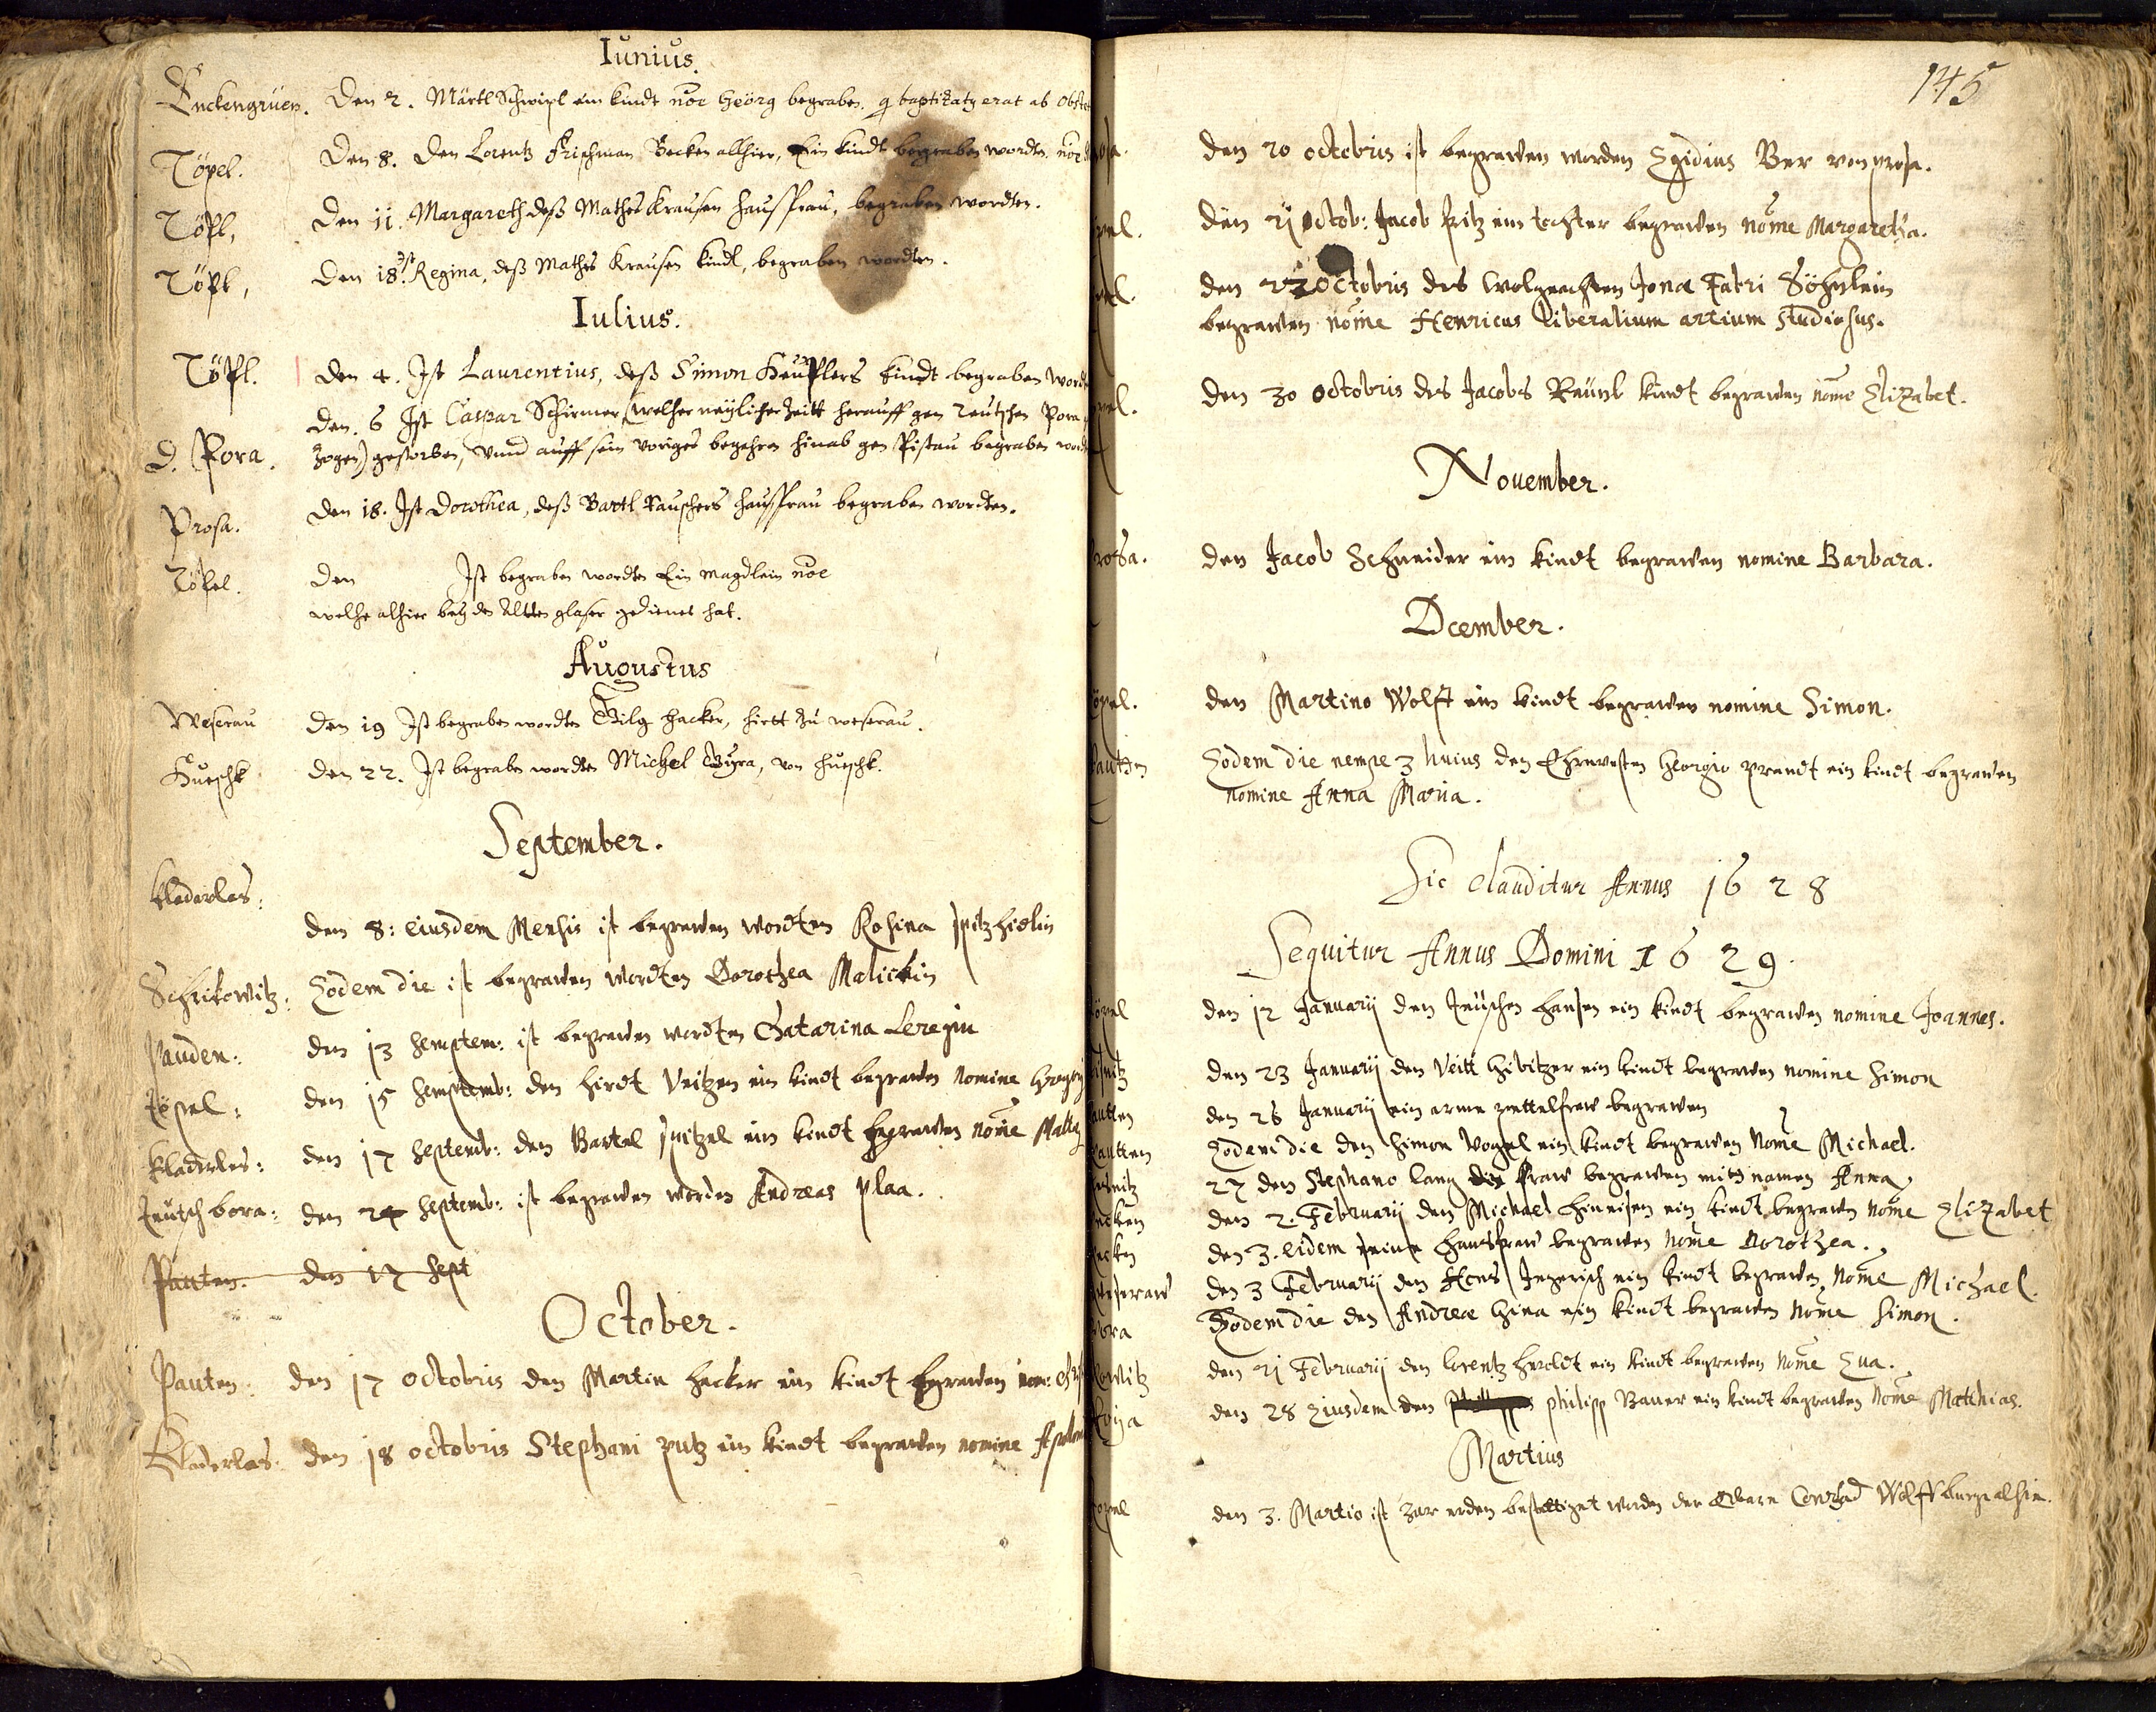 Iunius.
Enckengrüen. Den 2. Märtl Schripl ein kindt noe Geörg begraben. q baptizatq erat ab Obste
Töpel. Den 8. den Lorentz Frischman Becken allhier, Ein kindt begraben wordten. noe
Töpl, Den 11. Margareth deß Mathes Krausen haussfrau, begraben wordten.
Töpl, Den 18. Regina, deß Mathes Krausen kindl, begraben wordten.
Iulius.
Töpl. Den 4. Ist Laurentius, deß Simon Heüfflers kindt begraben word
Den. 6 Ist Caspar Schirmer, (welher neÿlicher Zeitt herauff gen Teutschen Pora
D. Pora. Zogen) gestorben, vnnd auff sein voriges begehren hinab gen Pistau begraben word
Prosa. Den 18. Ist Dorothea, deß Bartl Rauschers haussfrau begraben wordten.
Töpel. Den Ist begraben wordten Ein magdlein noe
welhe alhier beÿ den Altten glaser gedienet hat.
Augustus
Weserau Den 19 Ist begraben wordten Gilg Hacker, hirtt zu weserau.
Hurschk Den 22. Ist begraben wordten Michel Gÿra, von Hurschk.
September.
Kladerles:
den 8: eiusdem Mensis ist begrawen wordten Rosina spitzhidlin
Schrikowitz: Eodem die ist begrawen wordten Dorothea Malickin
Pauden: den 13 Semptem: ist begrawen wordten Chatarina Leregin
Töpel: den 15 Semptemb: den hirdt Veitzen ein kindt begrawen Nomine Gregor
Kladerles: den 17 Septemb: den Bartel spitzel ein kindt begrawen nome Matte
Teutsch bora: den 24 Septemb: ist begrawen worden Andreas plaa.
Pauten. den 17 Sept
October.
Pauten: den 17 octobris den Martin hacker ein kindt begrawen nom:
Kladerlas: den 18 octobris Stephani putz ein kindt begrawen nomine Apolon
145
den 20 octobris ist begrawen worden Egidius Ber von prosa.
pel. den 21 Octob: Jacob Fritz ein tochter begrawen nome Margaretha.
den 22 Octobris des Wolgeachten Jonæ Fatri Söhnlein
begrawen nome Henricus liberalium artium studiosus.
pel. den 30 octobris des Jacobs Räuml kindt begrawen nome Elizabet.
November.
rosa. den Jacob Schneider ein kindt begrawen nomine Barbara.
Dcember.
öpel. den Martino Wolfft ein kindt begrawen nomine Simon.
autten Eodem die nempe 3 huius den Ehrnvesten Georgio prandt ein kindt begrawen
nomine Anna Maria.
Sic clauditur Annus 1628
Sequitur Annus Domini 1629.
öpel den 12 Januarij den Teutschen hansen ein kindt begrawen nomine Joannes.
den 23 Januarij den Veitt Hibitzer ein kindt begrawen nomine Simon
autten den 26 Januarij ein arme zettelfraw begrawen
autten Eodem die den Simon Vogel ein kindt begrawen Nome Michael.
27 den Stephano lang die fraw begrawen mit namen Anna
den 2. Februarij den Michael hineisen ein kindt begrawen Nome Elizabet
den 3. eidem seine hausfraw begrawen Nome Dorothea.
weseraw den 3 Februarij den Hens Ingerisch ein kindt begrawen, Nome Michael.
bora Eodem die den Andreæ Gina ein kindt begrawen Nome Simon.
kowitz den 21 Februarij den lorentz heroldt ein kindt begrawen Nome Eua.
den 28 Eiusdem den philipp Bauer ein kindt begrawen Nome Matthias.
Martius
öpel den 3. Martio ist zur erden bestettiget worden der Conrad Wolff burger alhie.